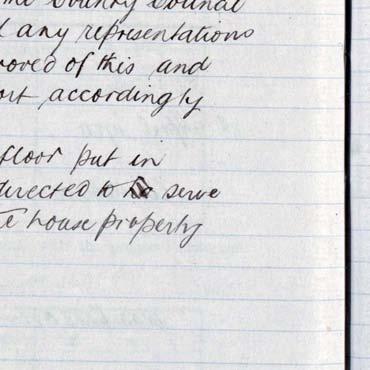 the Country Council
any representations
roved of this and
ort accordingly
floor put in
directed to serve
house property